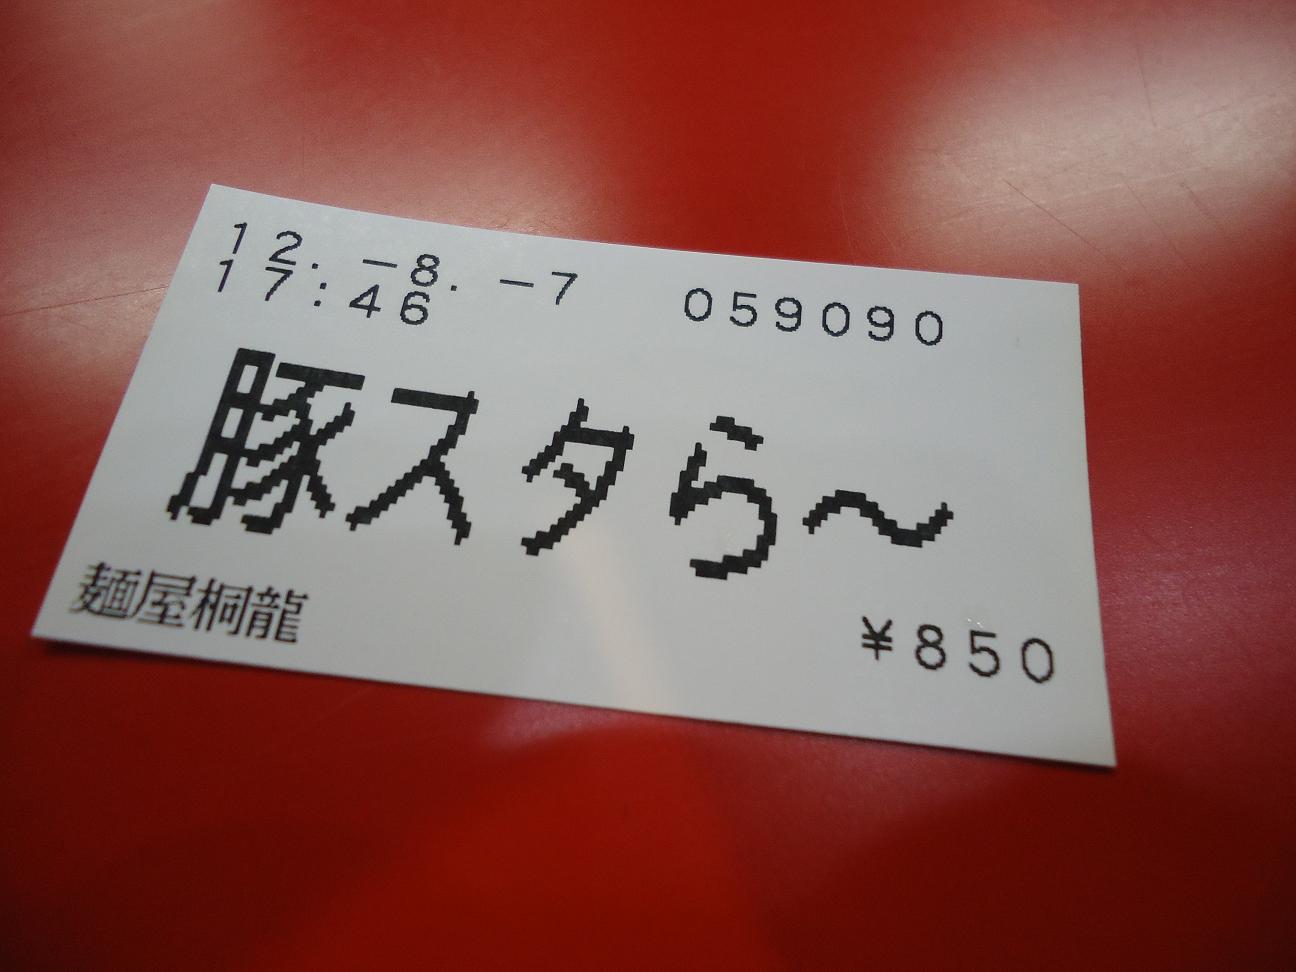 12.-8.-7 059090
17:46
豚スタら～
麺屋桐龍
¥850